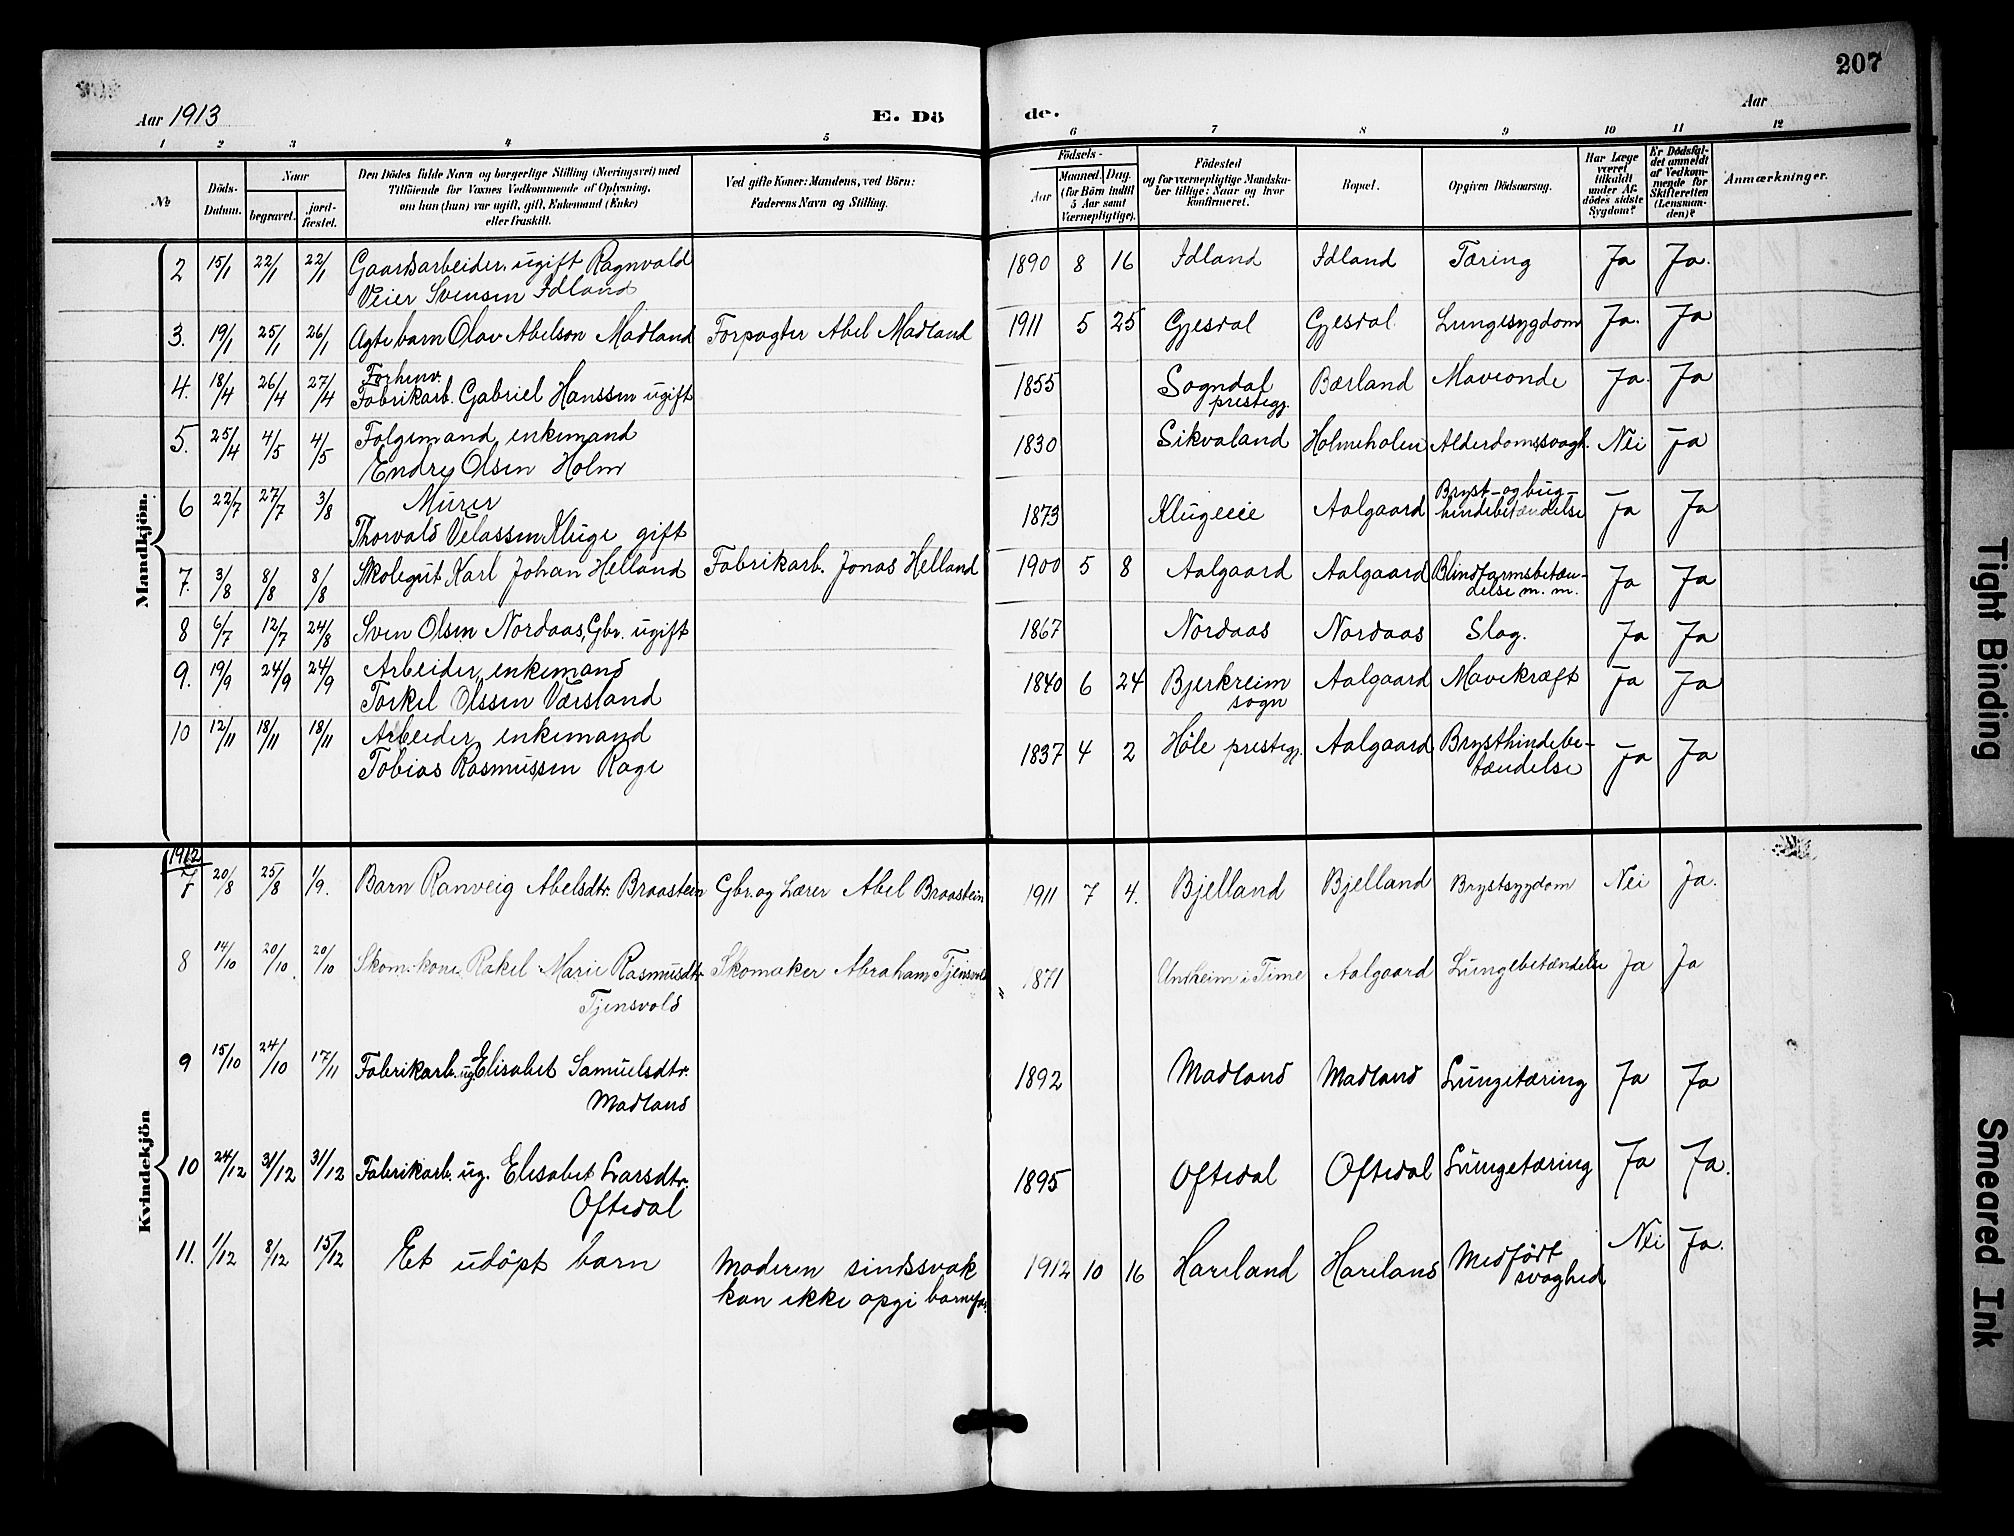 207
Aar 1913
E. Dö
de.
Aar
1 2 3 4 5 6 7 8 9 10 11 12
№
Döds-
Datum.
Naar
begravet.
jord-
fæstet.
Den Dödes fulde Navn og borgerlige Stilling (Næringsvei) med
Tilföiende for Voxnes Vedkommende af Oplysning,
om han (hun) var ugift, gift, Enkemand (Enke)
eller fraskilt.
Ved gifte Koner: Mandens, ved Börn:
Faderens Navn og Stilling.
Födsels-
Aar
Maaned. Dag.
(for Börn indtil
5 Aar samt
Værnepligtige).
Födested
og for værnepligtige Mandska-
ber tillige: Naar og hvor
konfirmeret.
Bopæl.
Opgiven Dödsaarsag.
Har Læge
været
tilkaldt
under Af-
dödes sidste
Sygdom?
Er Dödsfal-
det anmeldt
af Vedkom-
mende for
Skifteretten
(Lensman-
den)?
Anmærkninger.
Mandkjön.
2 15/1 22/1 22/1 Gaardsarbeider, ugift Ragnvald 1890 8 16 Idland Idland Tæring Ja Ja.
Veier Svensen Idland
3. 19/1 25/1 26/1 Ægte barn Olav Abelson Madland Forpagter Abel Madland 1911 5 25 Gjesdal Gjesdal Lungesygdom Ja. Ja
Forhenv.
4. 18/4 26/4 27/4 Fabrikarb. Gabriel Hanssen ugift 1855 Sogndal Bærland Maveonde Ja. Ja
prestegj.
5. 25/4 4/5 4/5 Folgemand, enkemand 1830 Sikvaland Holmeholen Alderdomssvagh. Nei Ja
Endre Olsen Holm
6 22/7 27/7 3/8 Murer 1873 Klugeeie Aalgaard Bryst- og bug- Ja Ja
hindebetændelse
Thorvald Velassen Kluge gift
7. 3/8 8/8 8/8 Skolegut Karl Johan Helland Fabrikarb. Jonas Helland 1900 5 8 Aalgaard Aalgaard Blindtarmsbetæn- Ja Ja
delse m. m.
8 6/7 12/7 24/8 Sven Olsen Nordaas, Gbr. ugift 1867 Nordaas Nordaas Slag. Ja Ja
9. 19/9 24/9 24/9 Arbeider, enkemand 1840 6 24 Bjerkreim Aalgaard Mavekræft Ja Ja
sogn
Torkel Olssen Værsland
10 12/11 18/11 18/11 Arbeider, enkemand 1837 4 2 Høle prestegj. Aalgaard Brysthindebe- Ja Ja
tændelse
Tobias Rasmussen Rage
Kvindekjön
1912
7 20/8 25/8 1/9. Barn Ranveig Abelsdtr. Braastein Gbr. og Lærer Abel Braastein 1911 7 4. Bjelland Bjelland Brystsygdom Nei Ja.
8 14/10 20/10. 20/10 Skom. kone Rakel Marie Rasmusdtr. Skomaker Abraham Tjensvold 1871 Undheim i Time Aalgaard Lungebetændelse Ja Ja
Tjensvold
9 15/10 24/10 17/11 Fabrikarb. ug. Elisabet Samuelsdtr. 1892 Madland Madland Lungetæring Ja Ja
Madland
10 24/12 31/12 31/12 Fabrikarb. ug. Elisabet Larsdtr. 1895 Oftedal Oftedal Lungetæring Ja Ja.
Oftedal
11. 1/12 8/12 15/12 Et udöpt barn Moderen sindssvak 1912 10 16 Hareland Hareland Medfödt Nei Ja.
svaghed
kan ikke opgi barnefar.
Tight Binding
Smeared Ink